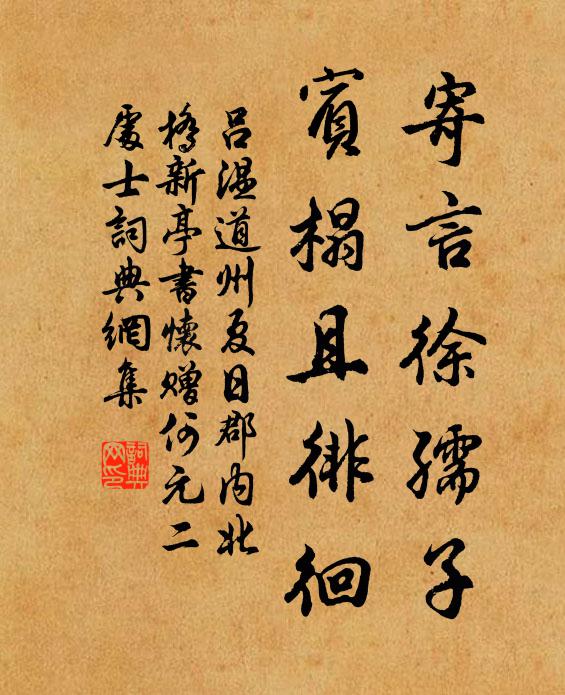 寄言徐孺子
賓榻且徘徊
吕温道州夏日郡内北
橋新亭書懷贈何元二
處士詞典網集
詞典
网印